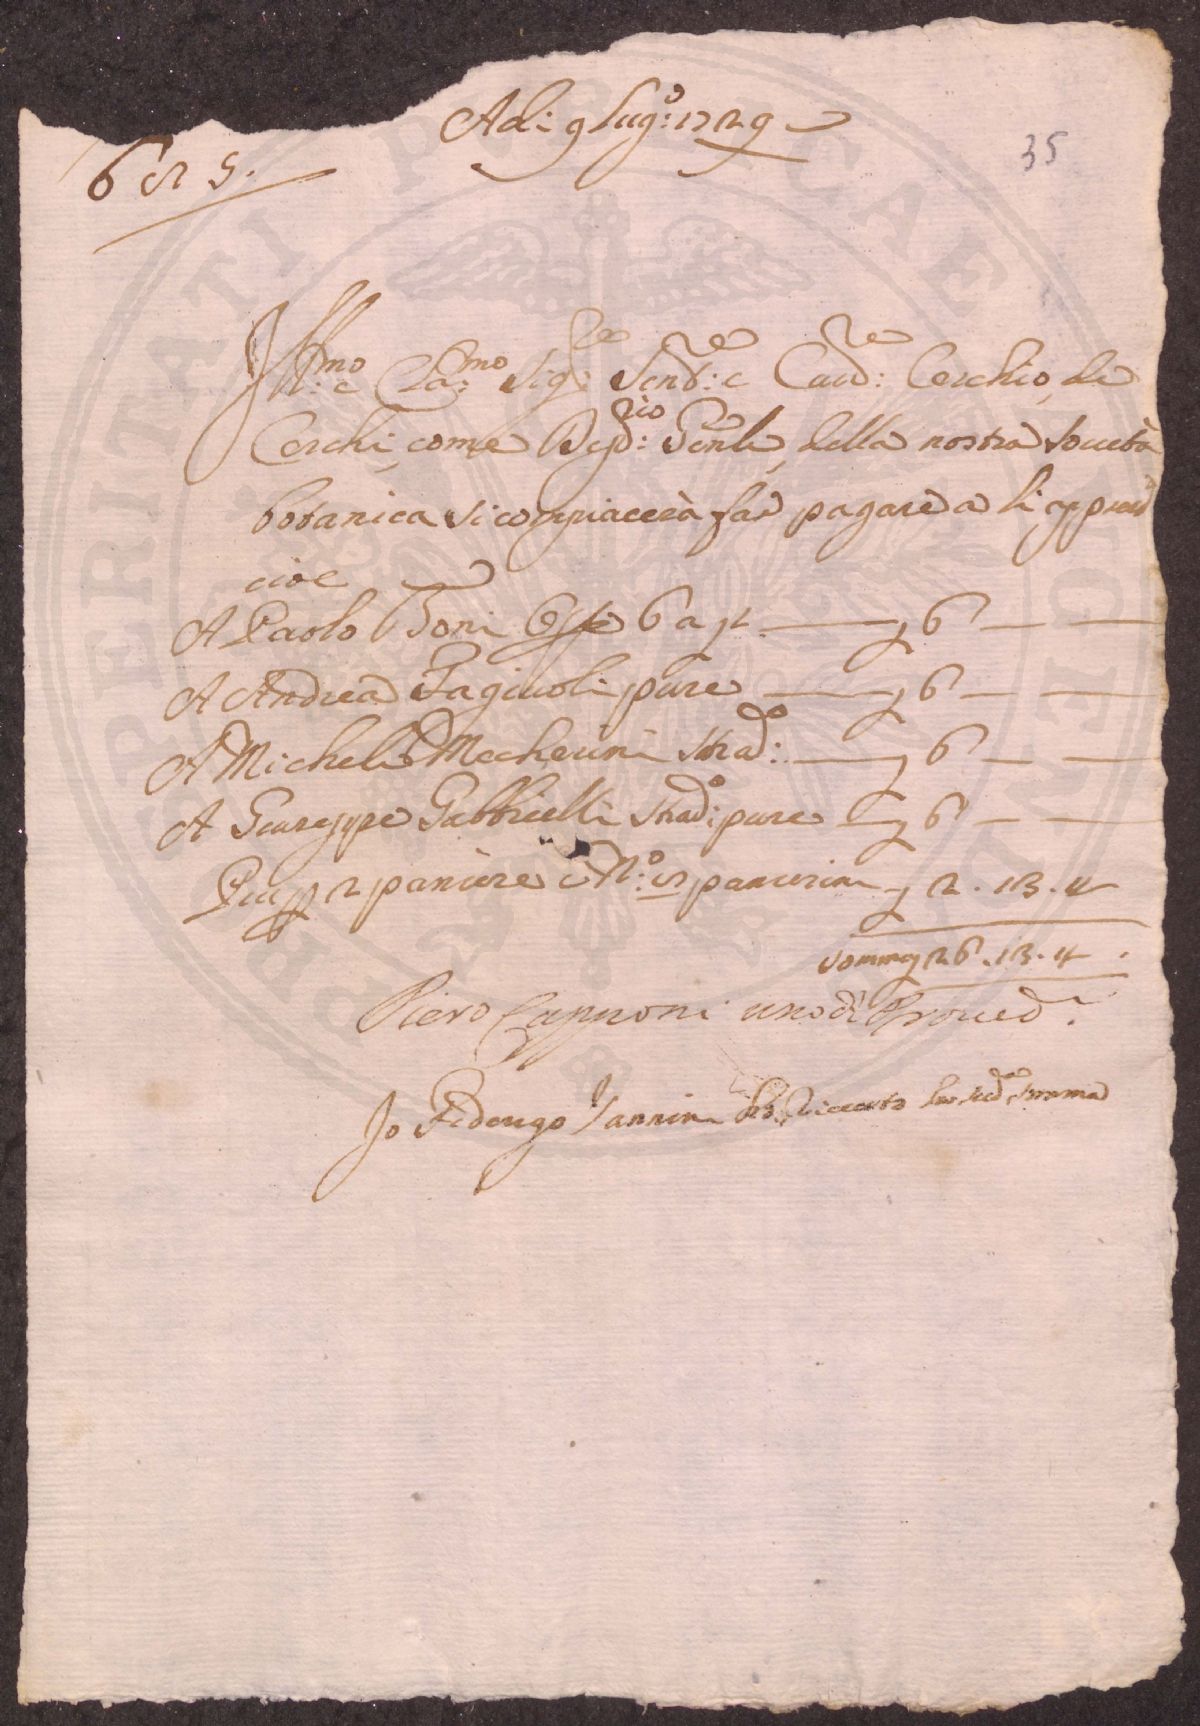 Adì: 9 Lug:o 1729
35
6
Ill:mo e Cla:mo Sig:re Sen:re e Cav:re Cerchio de
Cerchi, come Dep:rio Gen.le della nostra Società
botanica si compiacerà far pagare a li appied
cioè
A Paolo Boni 6 a 4 6
A Andrea Fagiuoli pure 6
A Michele Mecherini Strad:o 6
A Giuseppe Gabbrielli Strad:o pure 6
E più p 2 paniere e N:o panierin 2.13.4
somma 26.13.4
Piero Capponi uno di Proved.
Io Fidengo Vannini ho riceuto la sud.a somma
PROSPERITATI PUBLICAE AUGENDAE